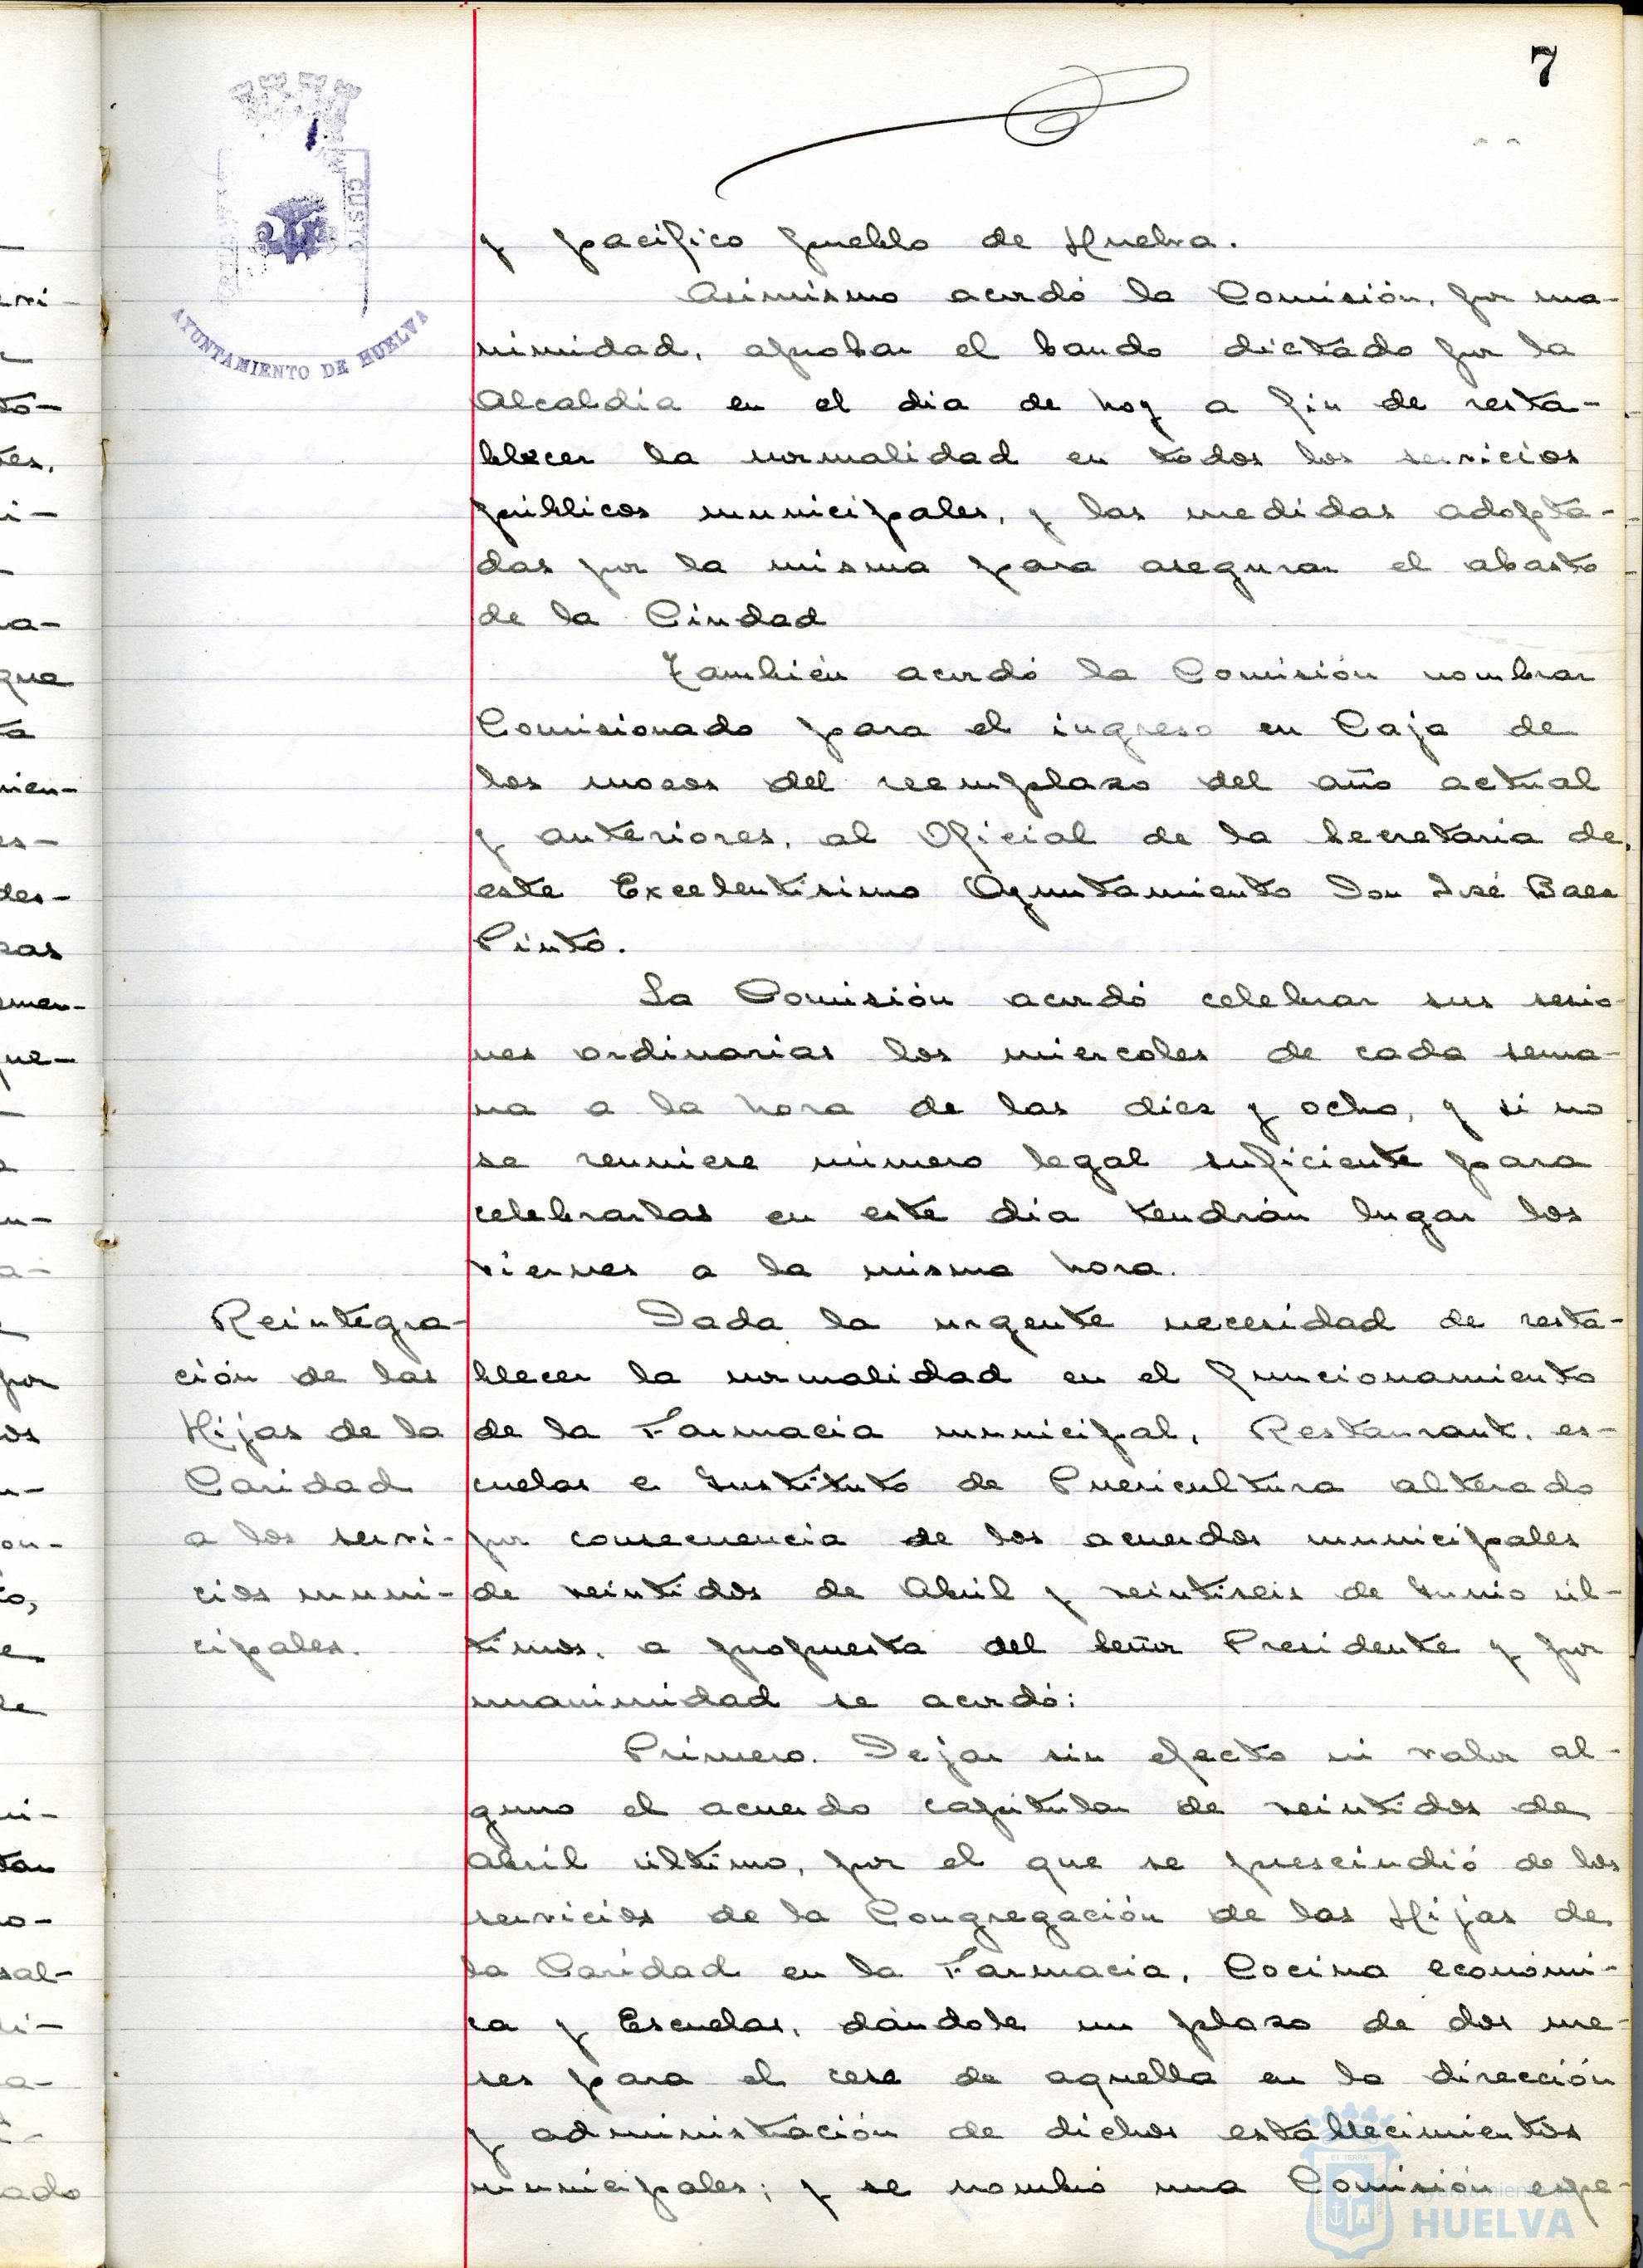 7
AYUNTAMIENTO DE HUELVA
y pacifico pueblo de Huelva.
Asimismo acordó la Comisión, por una-
nimidad, aprobar el bando dictado por la
Alcaldia en el dia de hoy a fin de resta-
blecer la normalidad en todos los servicios
públicos municipales, y las medidas adopta-
das por la misma para asegurar el abasto
de la Ciudad
También acordó la Comisión nombrar
Comisionado para el ingreso en Caja de
los mozos del reemplazo del año actual
y anteriores, al Oficial de la Secretaria de
este Excelentisimo Ayuntamiento Don José Baez
Pinto.
La Comisión acordó celebrar sus sesio-
nes ordinarias los miercoles de cada sema-
na a la hora de las diez y ocho, y si no
se reuniese número legal suficiente para
celebrarlas en este dia tendrán lugar los
viernes a la misma hora.
Reintegra-
ción de las
Hijas de la
Caridad
a los servi-
cios muni-
cipales.
Dada la urgente necesidad de resta-
blecer la normalidad en el funcionamiento
de la Farmacia municipal, Restaurant, es-
cuelas e Instituto de Puericultura alterado
por consecuencia de los acuerdos municipales
de veintidos de Abril y veintiseis de Junio úl-
timos, a propuesta del Señor Presidente y por
unanimidad se acordó:
Primero. Dejar sin efecto ni valor al-
guno el acuerdo capitular de veintidos de
Abril último, por el que se prescindió de los
servicios de la Congregación de las Hijas de
la Caridad en la Farmacia, Cocina económi-
ca y Escuelas, dándole un plazo de dos me-
ses para el cese de aquella en la dirección
y administración de dichos establecimientos
municipales; y se nombró una Comisión espe-
Ayuntamiento de
HUELVA